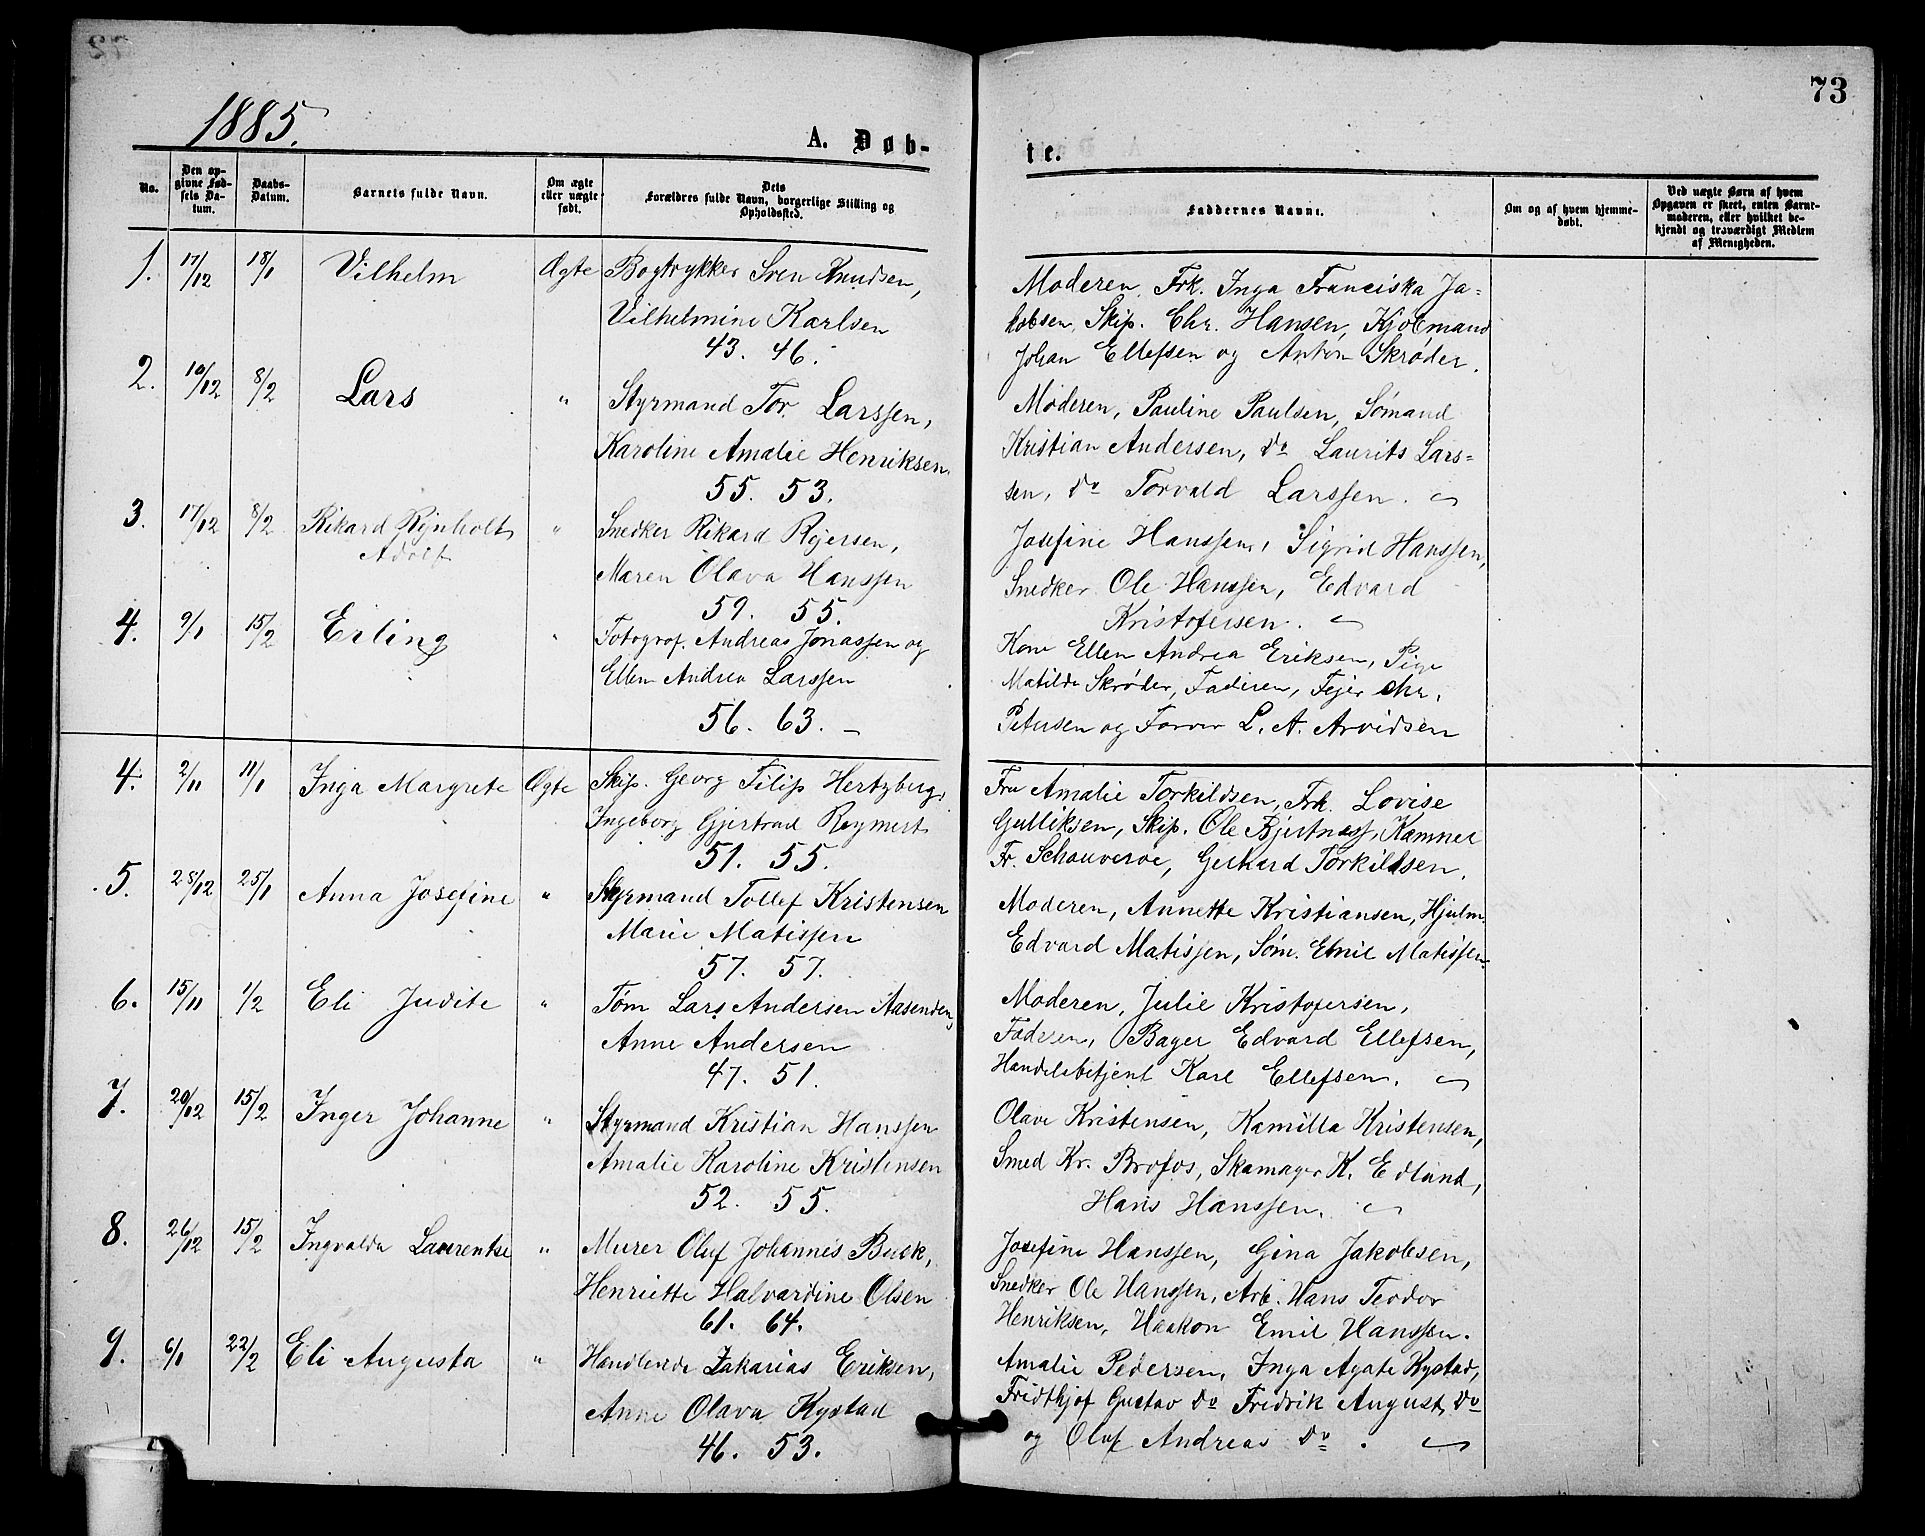 73
1885.
A. Døb-
te.
No.
Den op-
givne Fød-
sels Da-
tum.
Daabs-
Datum.
Barnets fulde Navn.
Om ægte
eller uægte
født.
Dets
Forældres fulde Navn, borgerlige Stilling og
Opholdssted.
Faddernes Navne.
Om og af hvem hjemme-
døbt.
Ved uægte Børn af hvem
Opgaven er skeet, enten Barne-
moderen, eller hvilket be-
kjendt og troværdigt Medlem
af Menigheden.
1. 17/12 18/1 Vilhelm Ægte Bogtrykker Sven Knudsen,
Vilhelmine Karlsen
43. 46.
Moderen, Frk. Inga Franciska Ja-
kobsen, Skip. Chr. Hansen, Kjøbmand
Johan Ellefsen og Anton Skrøder.
2. 10/12 8/2 Lars " Styrmand Tor Larssen,
Karoline Amalie Henriksen,
55. 53.
Moderen, Pauline Paulsen, Sømand
Kristian Andersen, do Laurits Lars-
sen, do Torvald Larssen.
3. 17/12 8/2 Rikard Rejnholt
Adolf " Snedker Rikard Rejersen,
Maren Olava Hanssen
59. 55.
Josefine Hanssen, Sigrid Hanssen,
Snedker Ole Hanssen, Edvard
Kristofersen.
4. 9/1 15/2 Erling " Fotograf. Andreas Jonassen og
Ellen Andrea Larssen
56. 63.
Kone Ellen Andrea Eriksen, Pige
Matilde Skrøder, Faderen, Fejer Chr.
Petersen og Farver L. A. Arvidsen
4. 2/11 11/1 Inga Margrete Ægte Skip. Georg Filip Hertzberg,
Ingeborg Gjertrud Reymert
51. 55.
Fru Amalie Torkildsen, Frk. Lovise
Gulliksen, Skip. Ole Bjertnæss, Kæmner
Fr. Schouveroe, Gerhard Torkildsen.
5. 28/12 25/1 Anna Josefine " Styrmand Tollef Kristensen
Marie Matissen
57. 57.
Moderen, Annette Kristiansen, Hjulm.
Edvard Matissen, Søm. Emil Matissen.
6. 15/11 1/2 Eli Judite " Tøm Lars Andersen Aasenden,
Anne Andersen
47. 51.
Moderen, Julie Kristofersen,
Faderen, Bager Edvard Ellefsen,
Handelsbetjent Karl Ellefsen.
7. 20/12 15/2 Inger Johanne " Styrmand Kristian Hanssen
Amalie Karoline Kristensen
52. 55.
Olave Kristensen, Kamilla Kristensen,
Smed Kr. Brofos, Skomager K. Edlund,
Hans Hanssen.
8. 26/12 15/2 Ingvalda Laurentse " Murer Oluf Johannes Buck,
Henriette Halvardine Olsen
61. 64.
Josefine Hanssen, Gina Jakobsen,
Snedker Ole Hanssen, Arb. Hans Teodor
Henriksen, Haakon Emil Hanssen.
9. 6/1 22/2 Eli Augusta " Handlende Zakarias Eriksen,
Anne Olava Kystad
46. 53.
Amalie Pedersen, Inga Agate Kystad,
Fridthjof Gustav do Fredrik August do
og Oluf Andreas do.